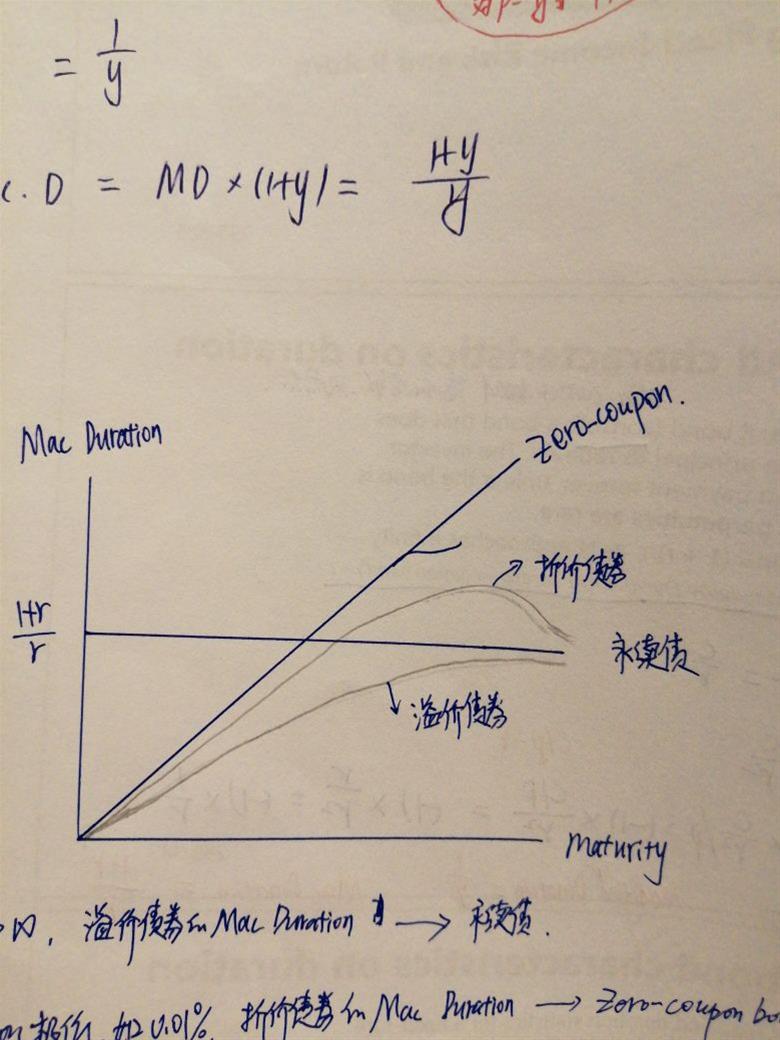 = 1/y
D = MD × (1+y) = 1+y/y
Mac Duration
zero-coupon.
折价债券
1+r/r
永续债
溢价债券
maturity
∞, 溢价债券的 Mac Duration → 永续债.
如0.01%, 折价债券的 Mac Duration → zero-coupon